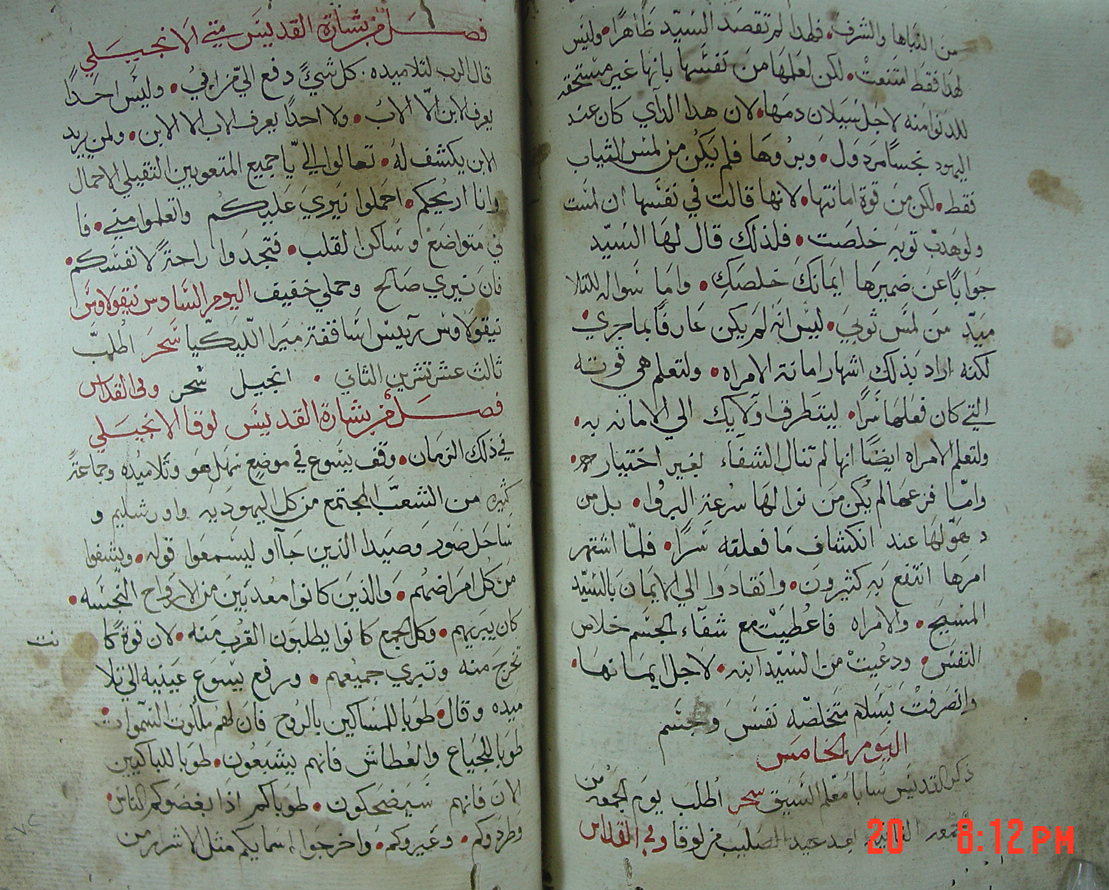 من القباها والشرف • فلهذا لم تقصد السيد ظاهرًا • وليس
لهذا فقط امتنعت • لكن لعلها من تفسها بانها غير مستحقه
للدنوا منه لاجل سيلان دمها • لان هدا الذي كان عند
اليهود نجسًا مردول • وبروها فلم يكن من لمس الثياب
فقط • لكن من قوة امانتها • لانها قالت في نفسها ان لمست
ولو هدب توبه خلصت • فلذلك قال لها السيد
جوابًا عن ضميرها ايمانك خلصك • واما سواله للتلا
ميد من لمس ثوبي • ليس انه لم يكن عارفًا بما جري •
لكنه اراد بذلك اشهار امانة الامراه • ولتعلم هي قوته
التي كان فعلها سرًا • ليتطرف اولايك الي الامانه به •
ولتعلم الامراه ايضًا انها لم تنال الشفاء لغير اختياره •
وامّا فزعها لم يكن من نوالها سرعة البرؤا • بل من
دهولها عند انكشاف ما فعلته سرًا • فلمّا اشتهر
امرها انتفع به كثيرون • وانقادوا الي الايمان بالسيد
المسيح • والامراه فاعطيت مع شفاء الجسم خلاص
النفس • ودعيت من السيد ابنه • لاجل ايمانها •
وانصرفت بسلام متخلصه نفس وجسم
اليوم الخامس
ذكر القديس سابا معلم السيق سحر اطلب يوم الجمعه من
بعد عيد الصليب من لوقا وفي القداس
فصل من بشارة القديس متي الانجيلي
قال الرب لتلاميده • كل شيٍ دفع الي من ابي • وليس احدًا
يعرف الابن الا الاب • ولا احدًا يعرف الاب الا الابن • ولمن يريد
الابن يكشف له • تعالوا اليّ يا جميع المتعوبين الثقيلي الاحمال
وانا اريحكم • احملوا نيري عليكم وتعلموا مني • فا
ني متواضع وساكن القلب • فتجدوا راحةً لانفسكم •
فان نيري صالح وحملي خفيف اليوم السادس نيقولاوس
نيقولاوس رييس اساقفة ميرا الليكيا سحر اطلب
ثالث عشر تشرين الثاني • انجيل سحر وفي القداس
فصل من بشارة القديس لوقا الانجيلي
في ذلك الزمان • وقف يسوع في موضع سهل هو وتلاميده وجماعة
كثير من الشعب المجتمع من كل اليهوديه واورشليم و
ساحل صور وصيدا الذين جااو ليسمعوا قوله • ويشفوا
من كل امراضهم • والذين كانوا معدبين من الارواح النجسه •
كان يبريهم • وكل الجمع كانوا يطلبون القرب منه • لان قوة كا
نت
تخرج منه وتبري جميعهم • ورفع يسوع عينيه الي تلا
ميده وقال • طوبا للمساكين بالروح فان لهم ملكوت السموات •
طوبا للجياع والعطاش فانهم يشبعون • طوبا للباكيين
الان فانهم سيضحكون • طوباكم اذا بغضوكم الناس •
وطردوكم • وعيروكم • واخرجوا اسمايكم مثل الاشرار من
20 8:12 PM